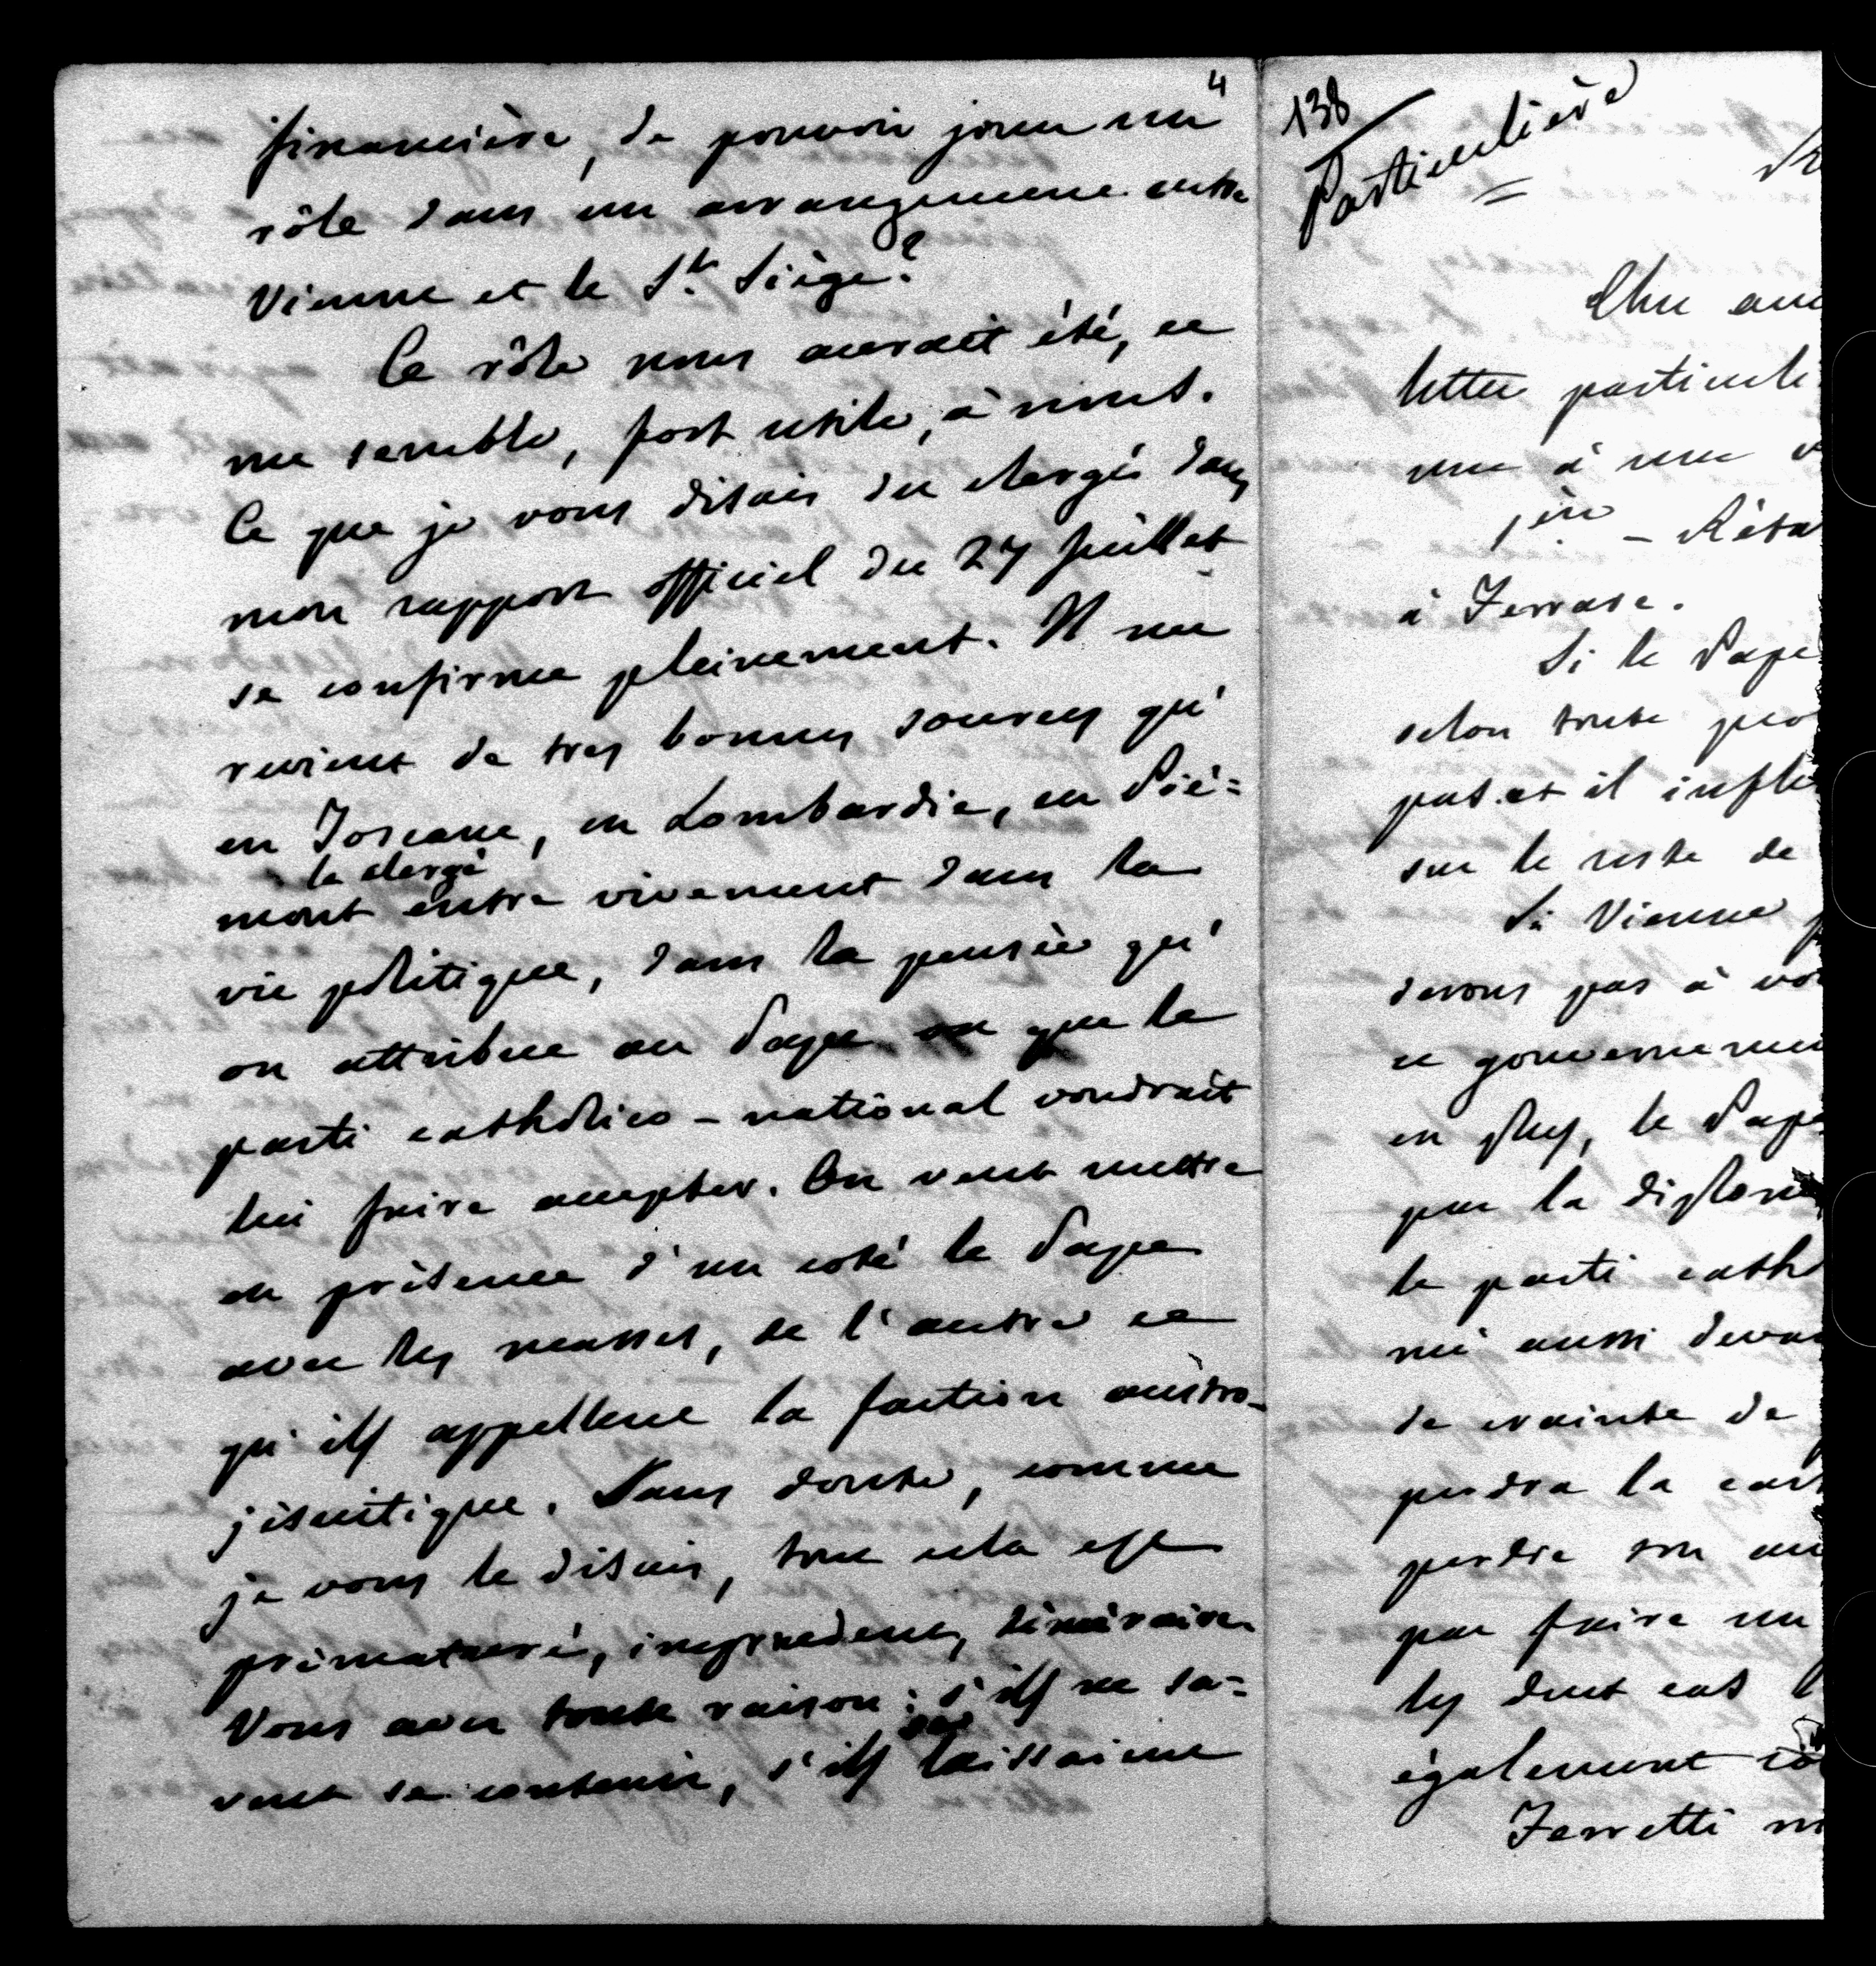 4
financière, de pouvoir jouer un
rôle dans un arrangement entre
Vienne et le St. Siège?
Ce rôle nous aurait été, ce
me semble, fort utile, à nous.
Ce que je vous disais du clergés dans
mon rapport officiel du 27 Juillet
se confirme pleinement. Il me
revient de tres bonnes sources qu'
en Toscane, en Lombardie, en Pié=
le clergé
mont entre vivement dans la
vie politique, dans la pensée qu'
on attribue au Pape que le
parti catholico-national voudrait
lui faire accepter. On veut mettre
en présence d'un coté le Pape
avec les masses, de l'autre ce
qu'ils appellent la faction austro-
jésuitique. Sans doute, comme
je vous le disais, tout cela est
prématuré, imprudent, téméraire
Vous avez toute raison: s'ils ne sa=
vent se contenir, s'ils laissaient
138
Particulière
Une
lettre particuliè
me à une
- Réta
à Ferrare.
Si le Pape
selon toute pro
pas et il infl
sur le reste de
Si Vienne
devons pas à vo
ce gouvernemen
en plus, le Pape
par la diplom
le parti cath
nié aussi deva
de crainte de
perdra la
perdre son
par faire un
les deux cas
également
Ferretti m